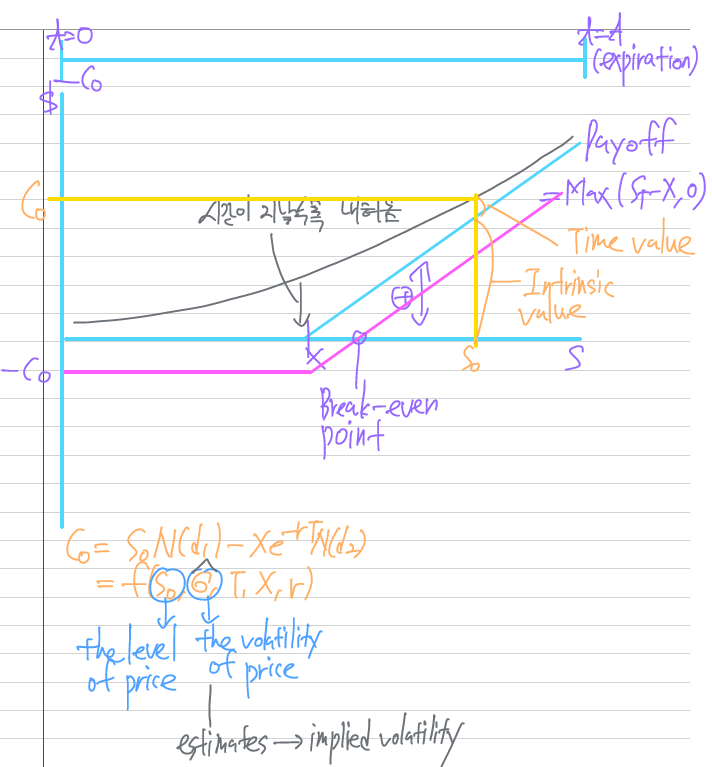 t=0
t=A
(expiration)
-C₀
$
Payoff
= Max(S_T-X,0)
C₀
시간이 지날수록 내려옴
Time value
Intrinsic
value
⊕
X
S₀
S
-C₀
Break-even
point
C₀ = S₀N(d₁)-Xe^{-rT}N(d₂)
= f(S₀, σ̂, T, X, r)
the level
of price
the volatility
of price
estimates → implied volatility